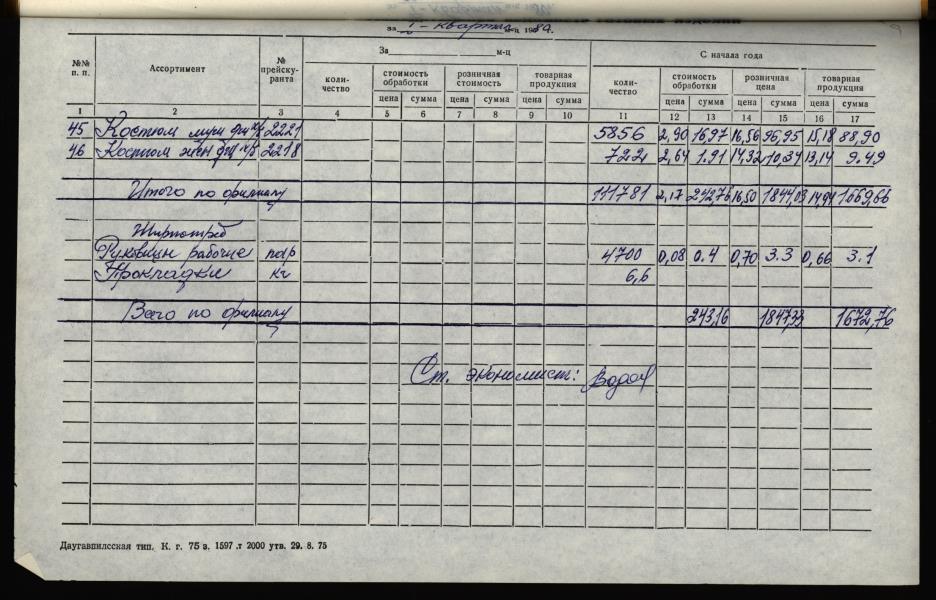 готовых изделий
за I - квартал м-ц 1984.
№№ п. п. Ассортимент № прейскуранта За м-ц С начала года
количество стоимость обработки розничная стоимость товарная продукция количество стоимость обработки розничная цена товарная продукция
цена сумма цена сумма цена сумма цена сумма цена сумма цена сумма
1 2 3 4 5 6 7 8 9 10 11 12 13 14 15 16 17
45 Костюм муж 2221 5856 2,90 16,97 16,56 96,95 15,18 88,90
46 Костюм жен 2218 722 2,64 1.91 14,32 10,34 13,14 9.49
Итого по филиалу 111781 2,17 242,76 16,50 1844,03 14,94 1669,66
Ширпотреб
Рукавицы рабочие пар 4700 0,08 0.4 0,70 3.3 0,66 3.1
Прокладки кг 6,6
Всего по филиалу 243,16 1847,33 1672,76
Ст. экономист:
Даугавпилсская тип. К. г. 75 з. 1597 .т 2000 утв. 29. 8. 75